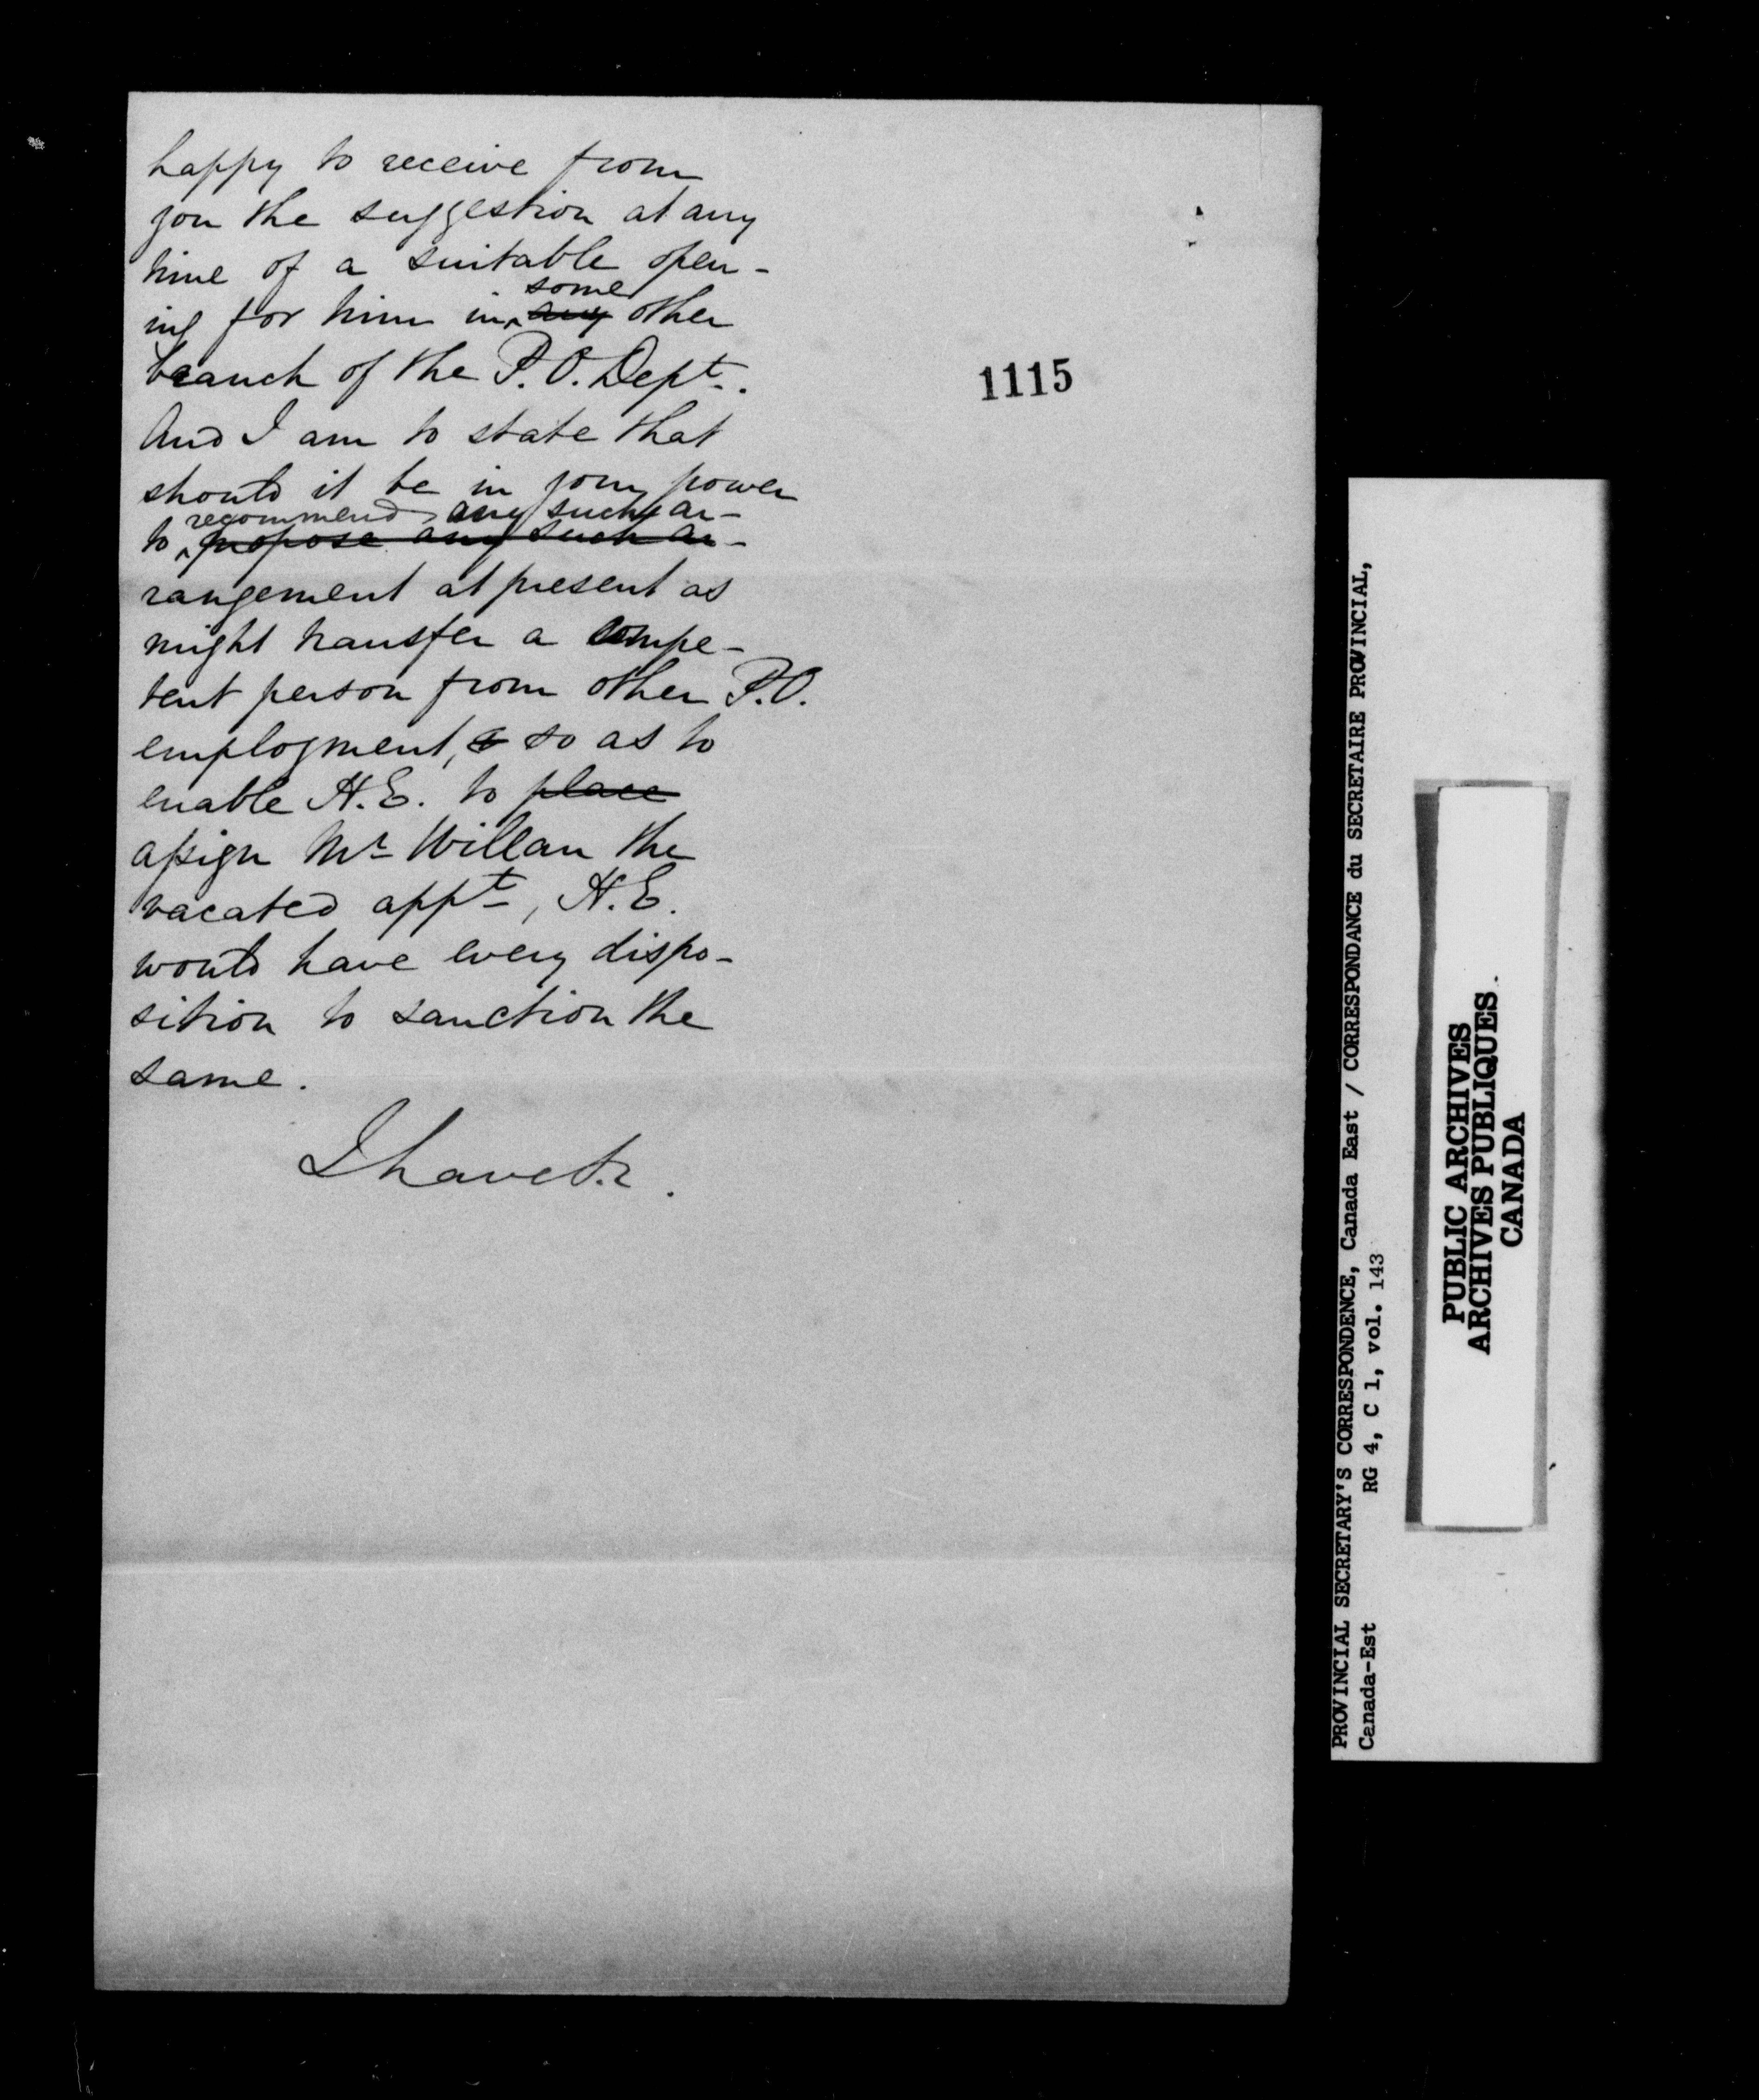 happy to receive from
you the suggestion at any
time of a suitable open-
ing for him in ^ some any other
branch of the P.O. Dept.
And I am to state that
should it be in your power
recommend any such ar-
to ^ propose any such ar-
rangement at present as
might transfer a compe-
tent person from other P.O.
employment, & so as to
enable H.E. to place
assign Mr Willan the
vacated appt, H.E.
would have every dispo-
sition to sanction the
same.
I have &c.
1115
PROVINCIAL SECRETARY'S CORRESPONDENCE, Canada East / CORRESPONDANCE du SECRETAIRE PROVINCIAL,
Canada-Est RG 4, C 1, vol. 143
PUBLIC ARCHIVES
ARCHIVES PUBLIQUES
CANADA